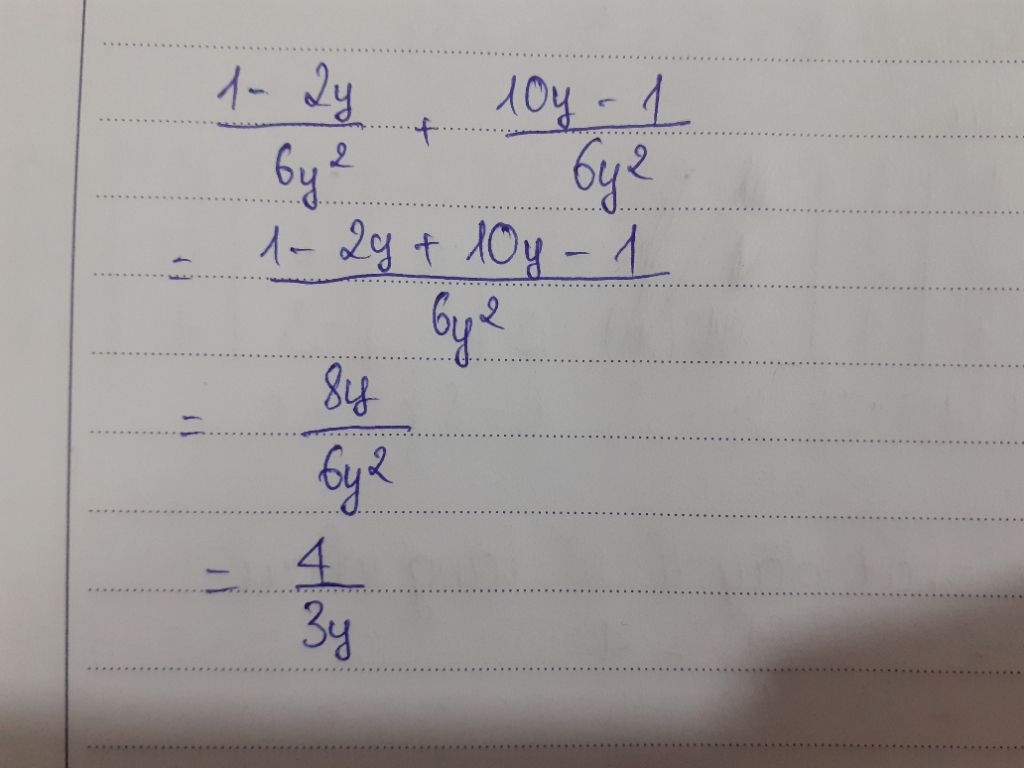 (1 - 2y)/(6y²) + (10y - 1)/(6y²)
= (1 - 2y + 10y - 1)/(6y²)
= (8y)/(6y²)
= 4/(3y)